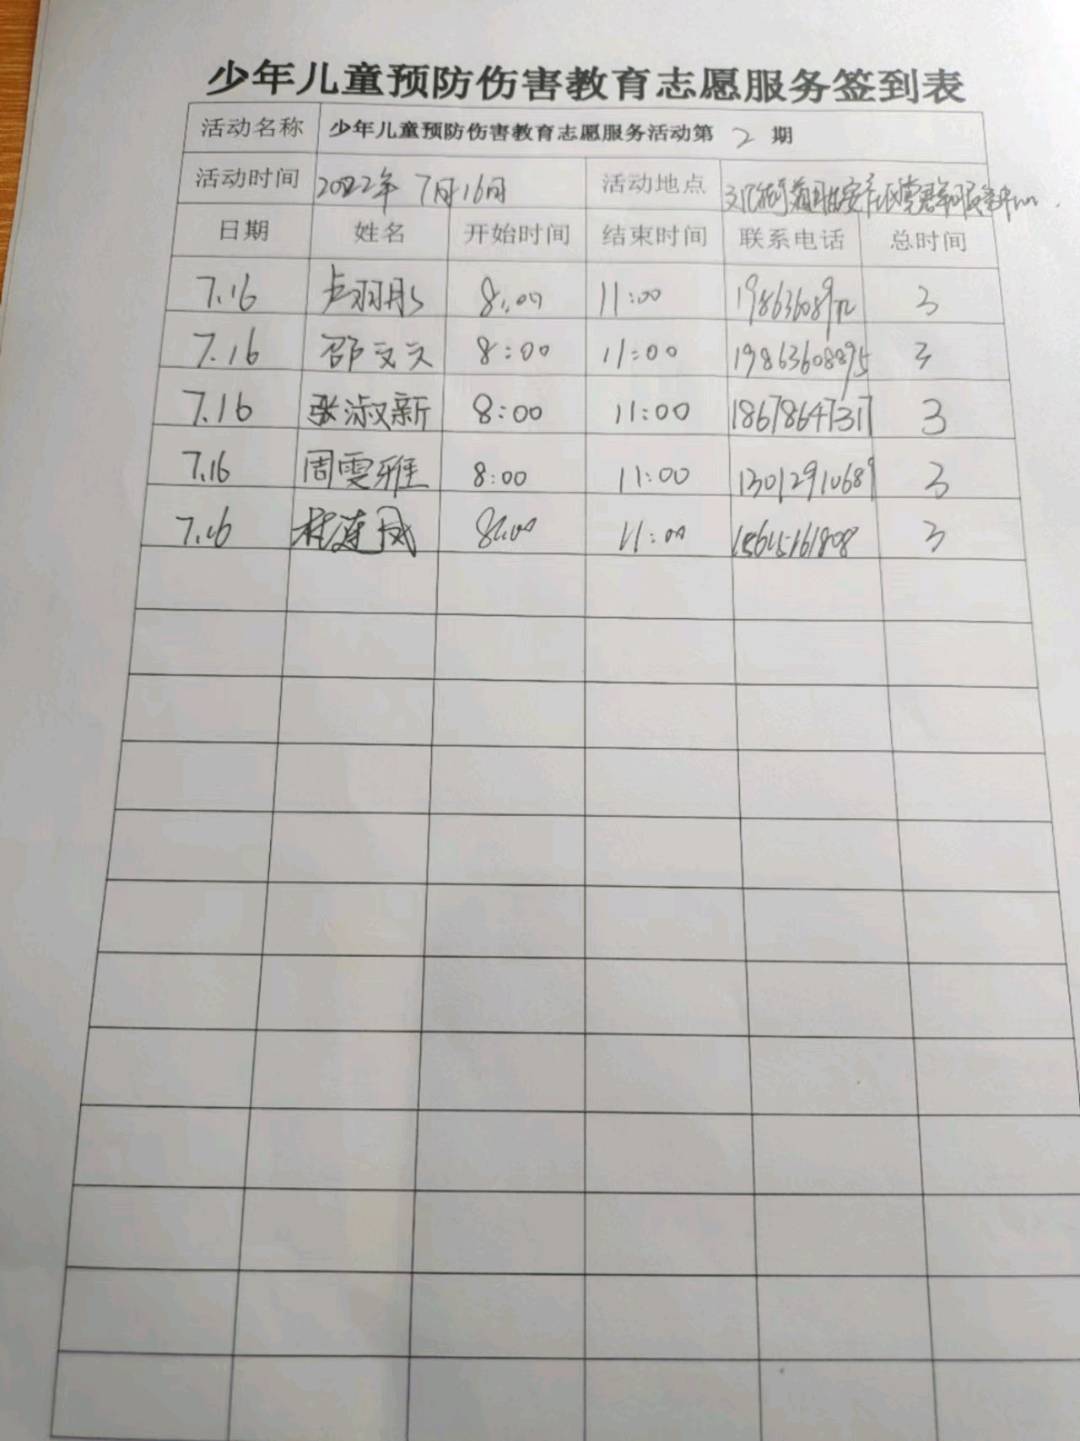 少年儿童预防伤害教育志愿服务签到表
活动名称 少年儿童预防伤害教育志愿服务活动第 2 期
活动时间 2022年 7月16日 活动地点
日期 姓名 开始时间 结束时间 联系电话 总时间
7.16 卢羽彤 8:00 11:00 3
7.16 邵文文 8:00 11:00 19863608895 3
7.16 张淑新 8:00 11:00 18678647317 3
7.16 周雯雅 8:00 11:00 13012910689 3
7.16 杜莲凤 8:00 11:00 3